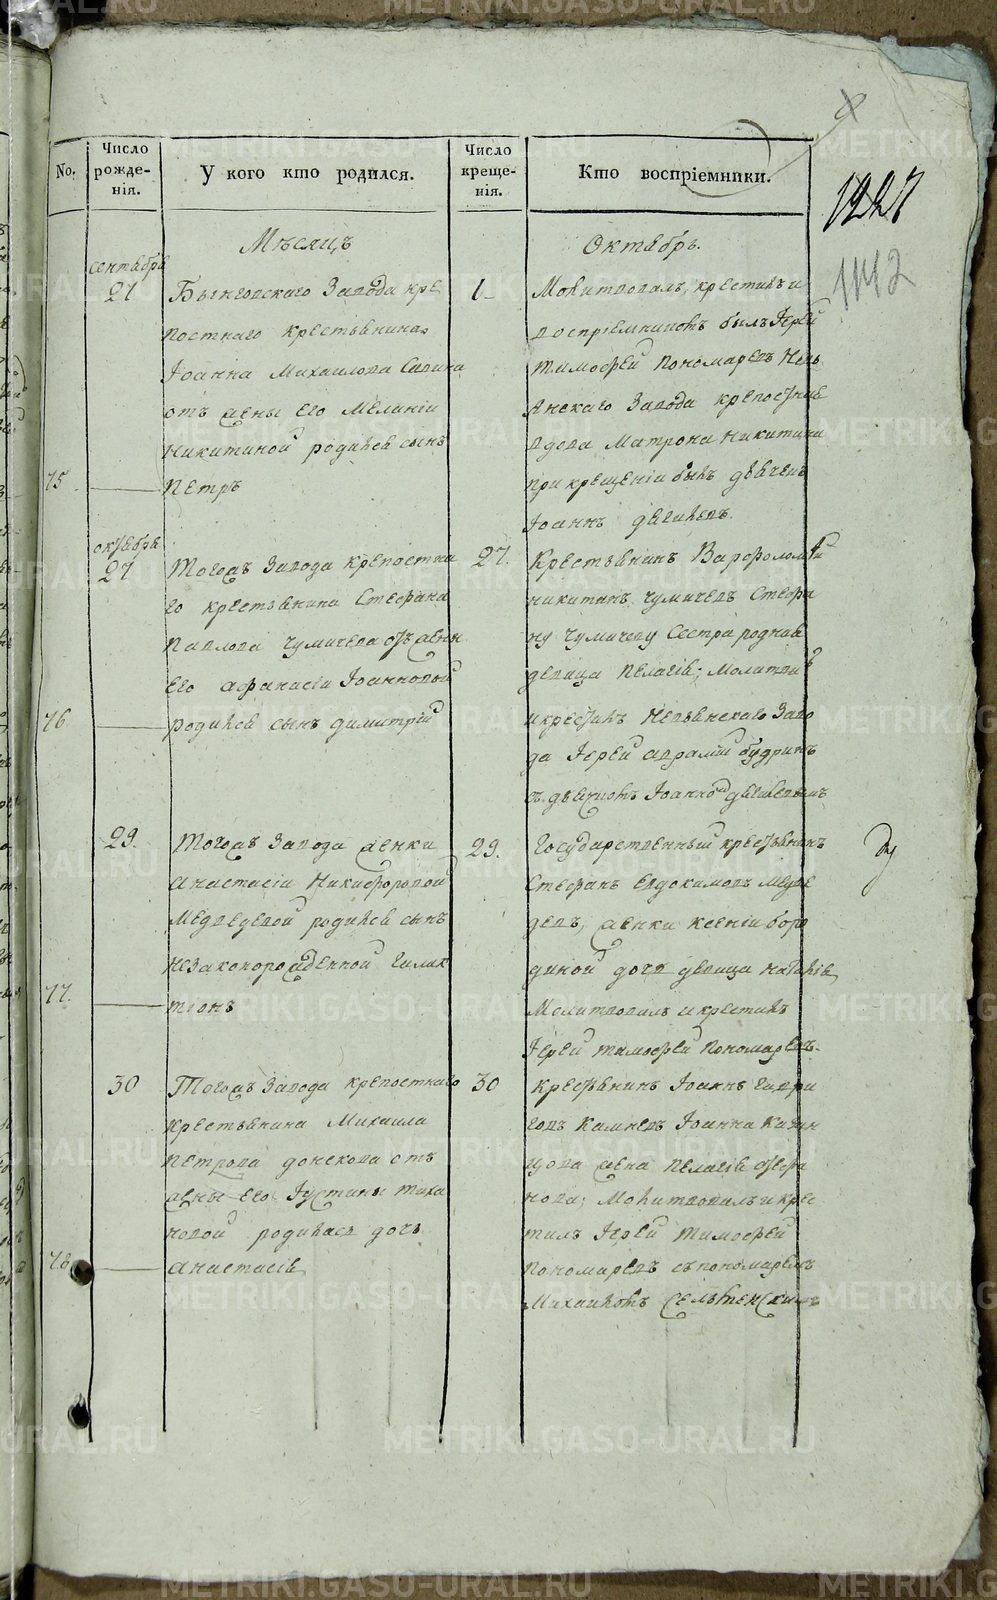 No.
Число рожде-нія.
У кого кто родился.
Число креще-нія.
Кто воспріемники.
1227
1112
Мѣсяцъ
Октябрь.
сентября
27
Бынговскаго Завода кре
постнаго крестьянина
Іоанна Михаилова Савина
отъ жены его Меланіи
Никитиной родился сынъ
75
Петръ
1
Молитвовалъ, крестилъ и
воспріемникомъ былъ Іерей
Тимофей Пономаревъ Невь
янскаго Завода крепостная
вдова Матрона Никитина
при крещеніи былъ дьячекъ
Іоаннъ
октября
27
Тогожъ Завода крепостна
го крестьянина Стефана
Павлова Чумичева отъ жены
его Афанасіи Іоанновой
76
родился сынъ Димитрій
27.
Крестьянинъ Варфоломей
Никитинъ Чумичевъ Стефа
ну Чумичеву Сестра родная
девица Пелагія; Молитвов
и крестилъ Невьянскаго Заво
да Іерей Аврамій Будринъ
съ дьячкомъ Іоанномъ
29.
Тогожъ Завода женки
Анастасіи Никифоровой
Медведевой родился сынъ
незаконорожденной Галак
77.
тіонъ
29.
Государственный крестьянинъ
Стефанъ Евдокимовъ Медве
девъ, женки Ксеніи Боро
диной дочь девица Наталія
Молитвовалъ и крестилъ
Іерей Тимофей Пономаревъ.
30
Тогожъ Завода крепостнаго
крестьянина Михаила
Петрова Донскова отъ
жены его Іустины Тиха
новой родилась дочь
78
Анастасія
30
Крестьянинъ Іоаннъ Гаври
ловъ Камневъ Іоанна Казан
цова жена Пелагія Стефа
нова; Молитвовалъ и крес
тилъ Іерей Тимофей
Пономаревъ съ пономаремъ
Михаиломъ Селъменскимъ
METRIKI.GASO-URAL.RU